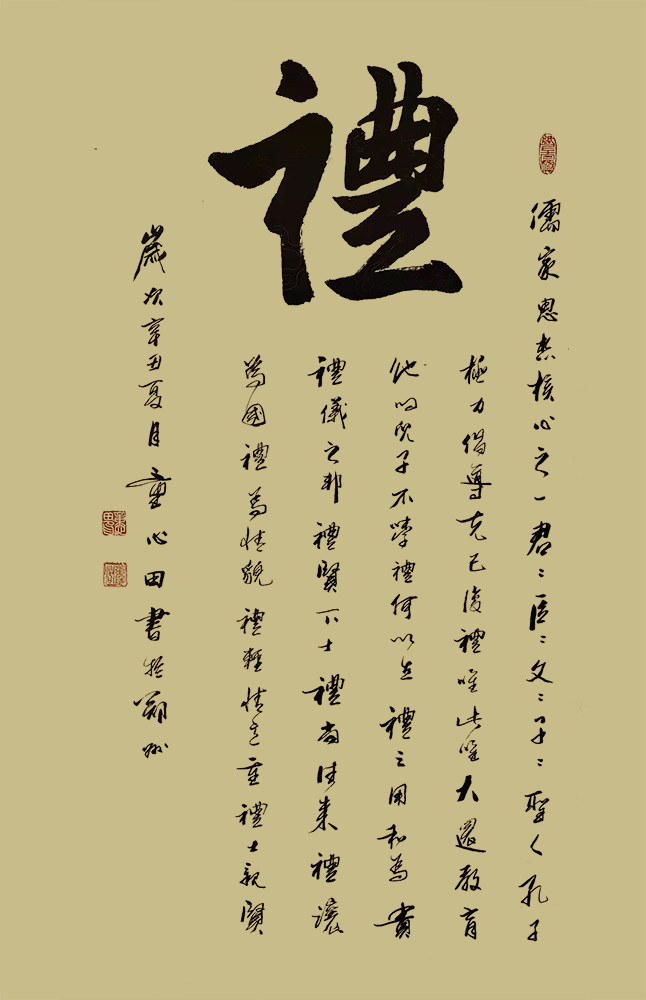 禮
儒家思想核心之一君〻臣〻父〻子〻聖人孔子
極力倡導克己復禮唯此唯大還教育
他的兒子不學禮何以立禮之用和為貴
禮儀之邦禮賢下士禮尚往來禮讓
為國禮為情貌禮輕情意重禮士親賢
歲次辛丑夏月童心田書於朔州